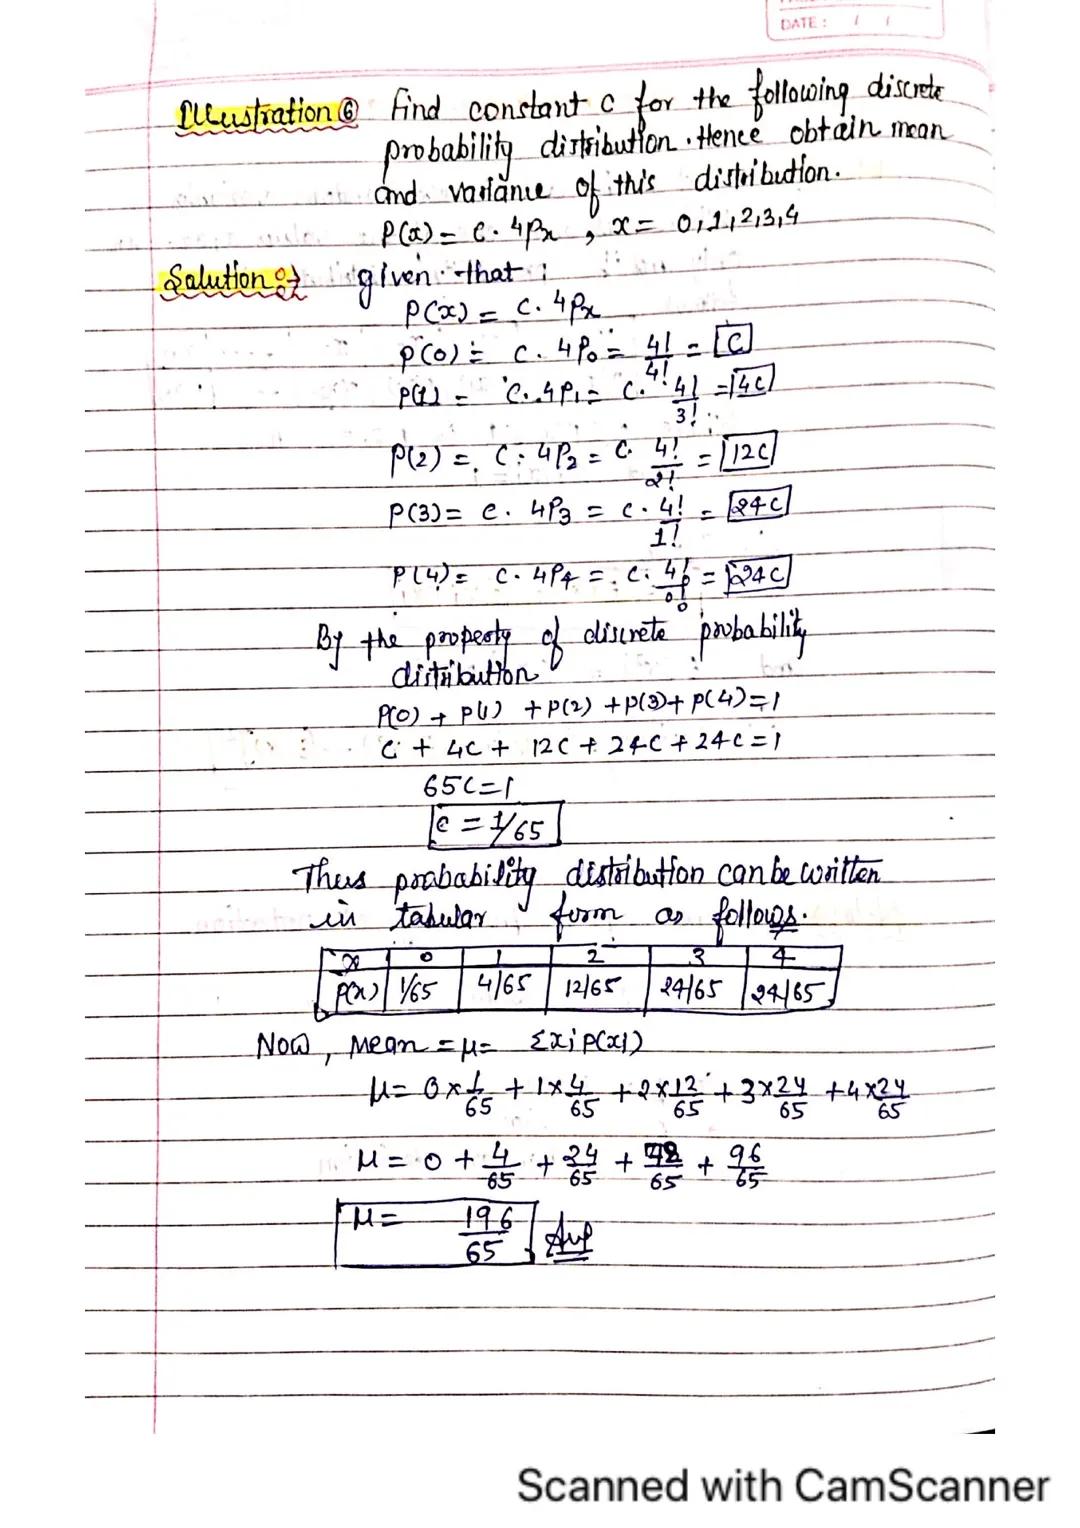 DATE: / /
Illustration ⑥ Find constant c for the following discrete
probability distribution. Hence obtain mean
and variance of this distribution.
P(x) = c. 4Px, x = 0,1,2,3,4
Solution :- given that :
P(x) = c. 4Px
P(0) = c. 4P0 = 4!/4! = C
P(1) = C. 4P1 = C. 4!/3! = 4C
P(2) = C. 4P2 = C. 4!/2! = 12C
P(3) = c. 4P3 = c. 4!/1! = 24C
P(4) = c. 4P4 = c. 4!/0! = 24C
By the property of discrete probability
distribution
P(0) + P(1) + P(2) + P(3) + P(4) = 1
C + 4C + 12C + 24C + 24C = 1
65C = 1
c = 1/65
Thus probability distribution can be written
in tabular form as follows.
x 0 1 2 3 4
P(x) 1/65 4/65 12/65 24/65 24/65
Now, Mean = μ = Σxi p(xi)
μ = 0×1/65 + 1×4/65 + 2×12/65 + 3×24/65 + 4×24/65
μ = 0 + 4/65 + 24/65 + 72/65 + 96/65
μ = 196/65 Ans
Scanned with CamScanner